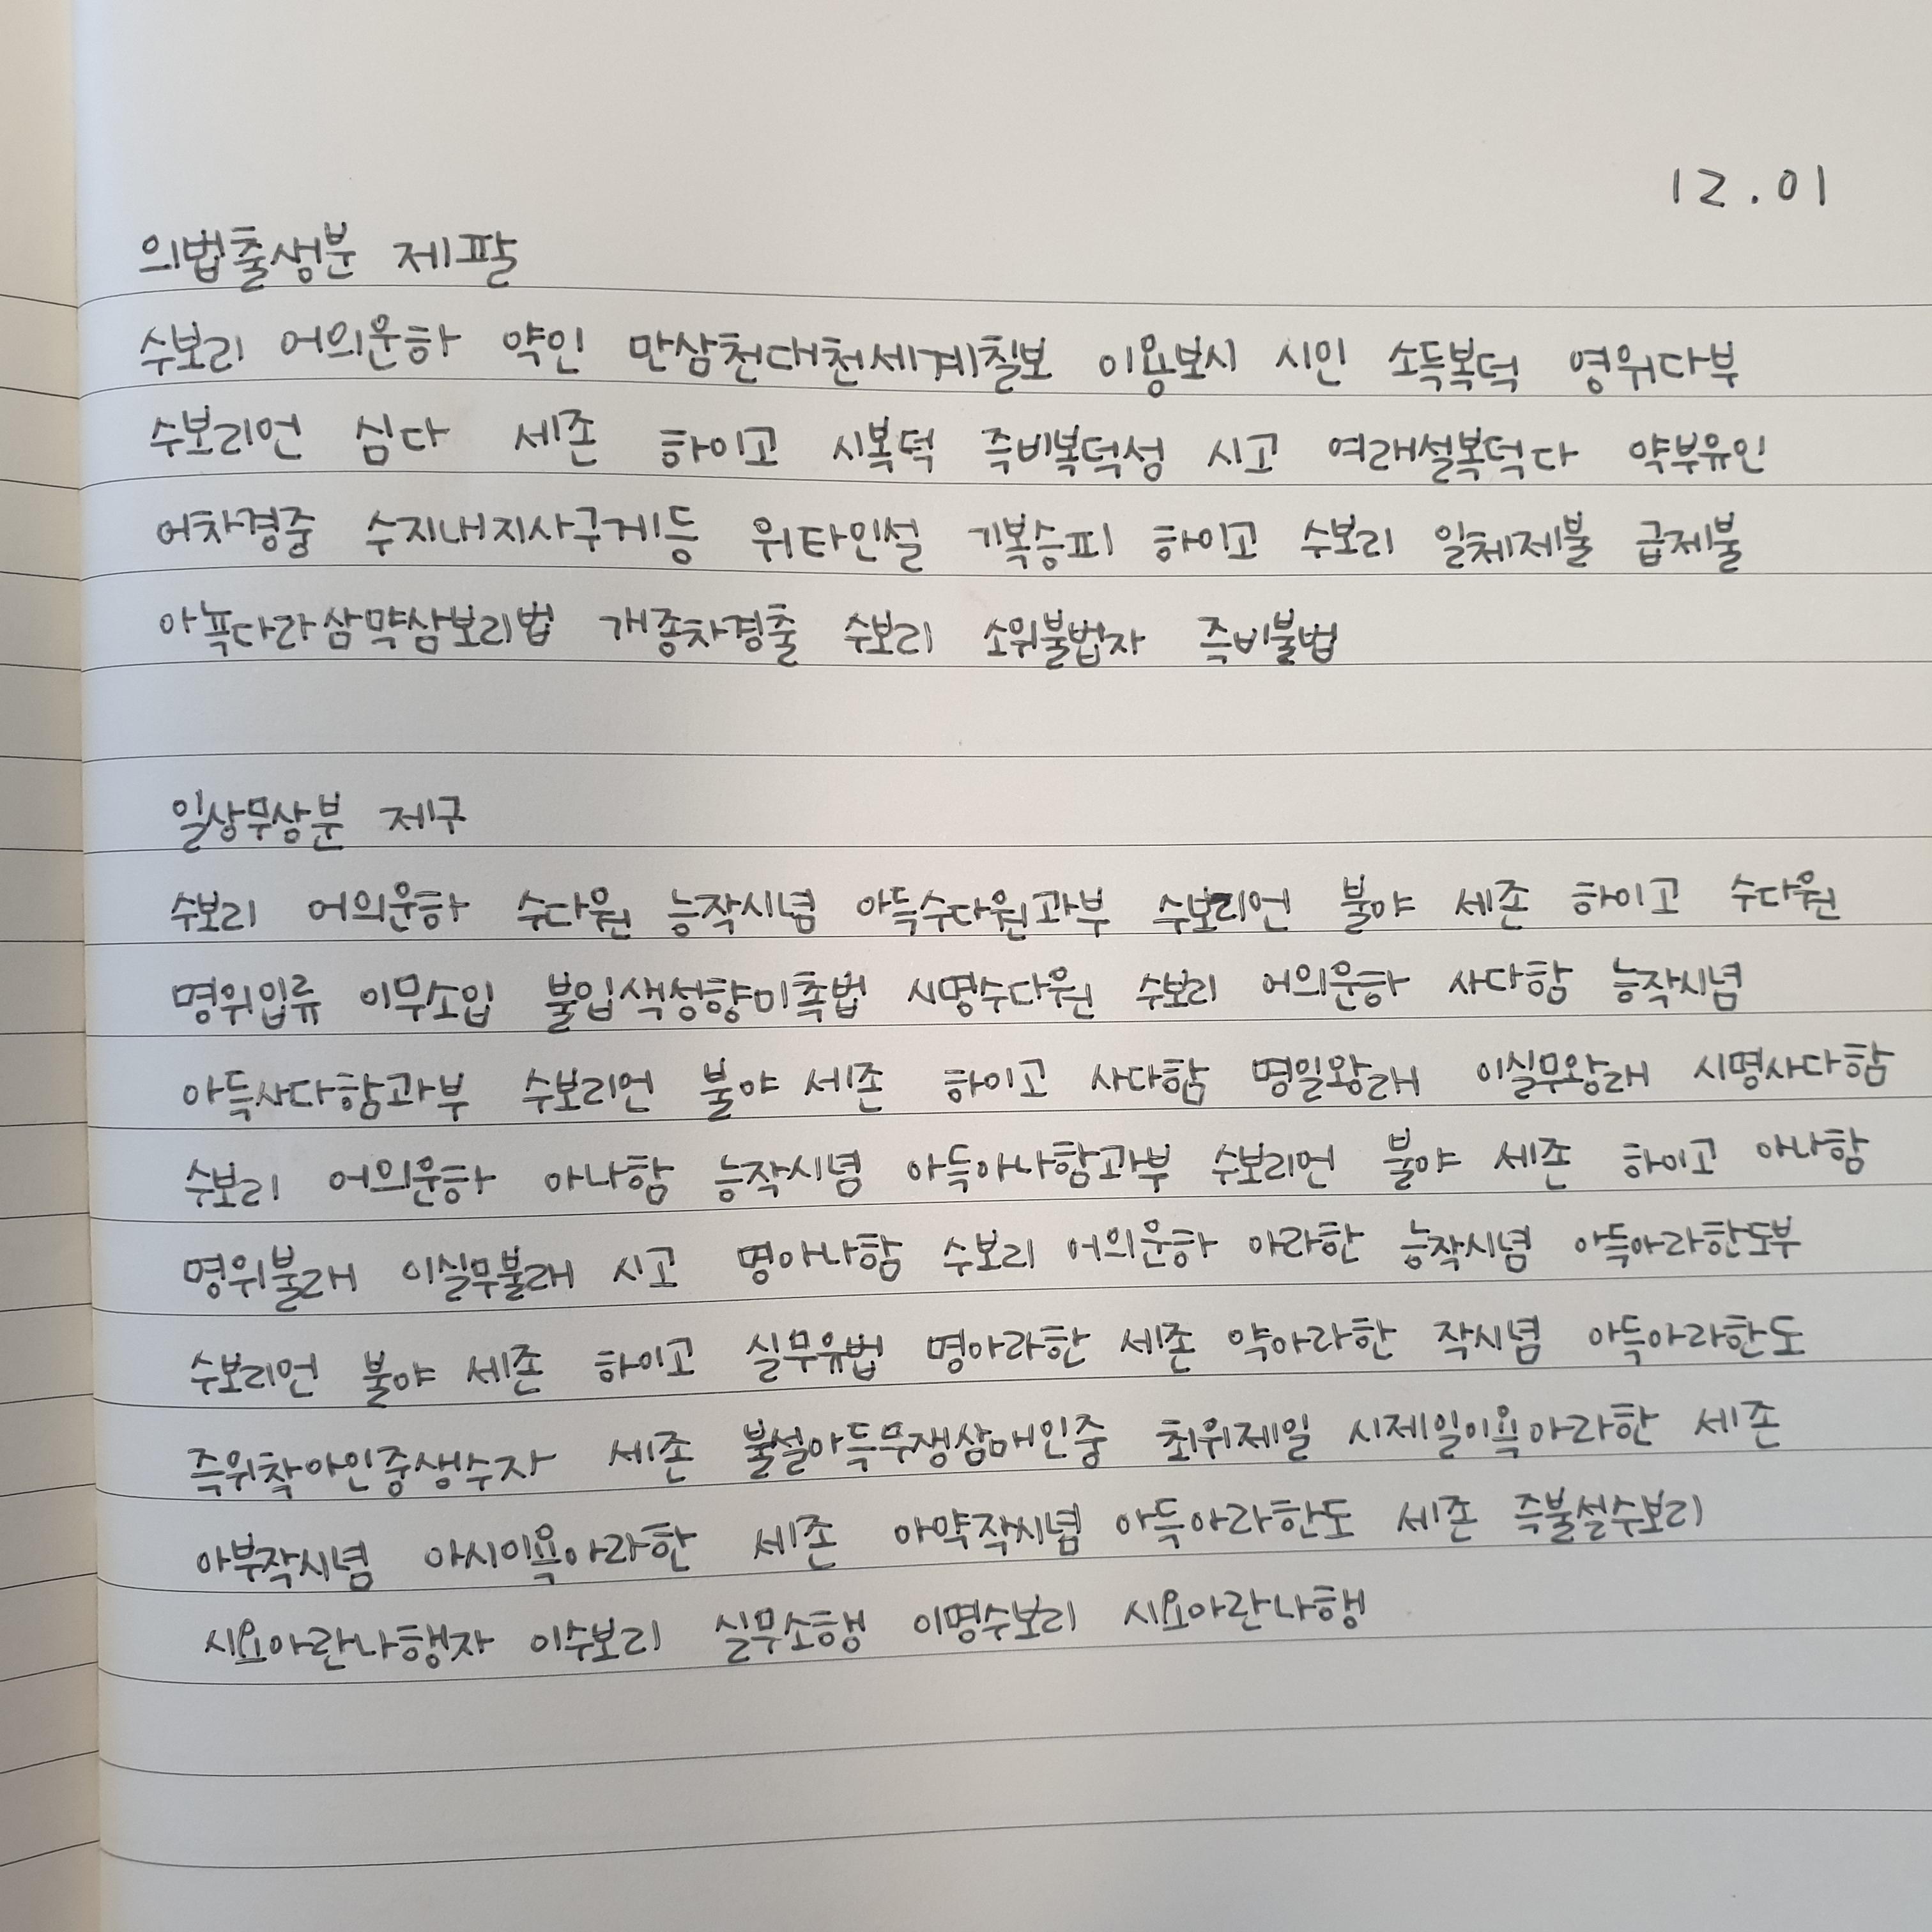 12.01
의법출생분 제팔
수보리 어의운하 약인 만삼천대천세계칠보 이용보시 시인 소득복덕 영위다부
수보리언 심다 세존 하이고 시복덕 즉비복덕성 시고 여래설복덕다 약부유인
어차경중 수지내지사구게등 위타인설 기복승피 하이고 수보리 일체제불 급제불
아뇩다라삼먁삼보리법 개종차경출 수보리 소위불법자 즉비불법
일상무상분 제구
수보리 어의운하 수다원 능작시념 아득수다원과부 수보리언 불야 세존 하이고 수다원
명위입류 이무소입 불입색성향미촉법 시명수다원 수보리 어의운하 사다함 능작시념
아득사다함과부 수보리언 불야 세존 하이고 사다함 명일왕래 이실무왕래 시명사다함
수보리 어의운하 아나함 능작시념 아득아나함과부 수보리언 불야 세존 하이고 아나함
명위불래 이실무불래 시고 명아나함 수보리 어의운하 아라한 능작시념 아득아라한도부
수보리언 불야 세존 하이고 실무유법 명아라한 세존 약아라한 작시념 아득아라한도
즉위착아인중생수자 세존 불설아득무쟁삼매인중 최위제일 시제일이욕아라한 세존
아부작시념 아시이욕아라한 세존 아약작시념 아득아라한도 세존 즉불설수보리
시요아란나행자 이수보리 실무소행 이명수보리 시요아란나행